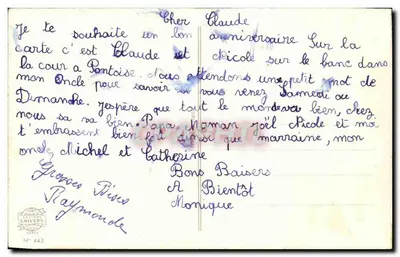 Cher Claude
Je te souhaite un bon anniversaire Sur la
carte c'est Claude et Nicole sur le banc dans
la cour a Pontoise. Nous attendons une petit mot de
mon Oncle pour savoir si vous venez Samedi ou
Dimanche. j'espère que tout le monde va bien, chez
nous sa va bien Papa Maman Joël Nicole et moi
t'embrassent bien fort ainsi que marraine, mon
oncle Michel et Catherine
Bons Baisers
A Bientôt
Monique
Grosses Bises
Raymonde
N° 442